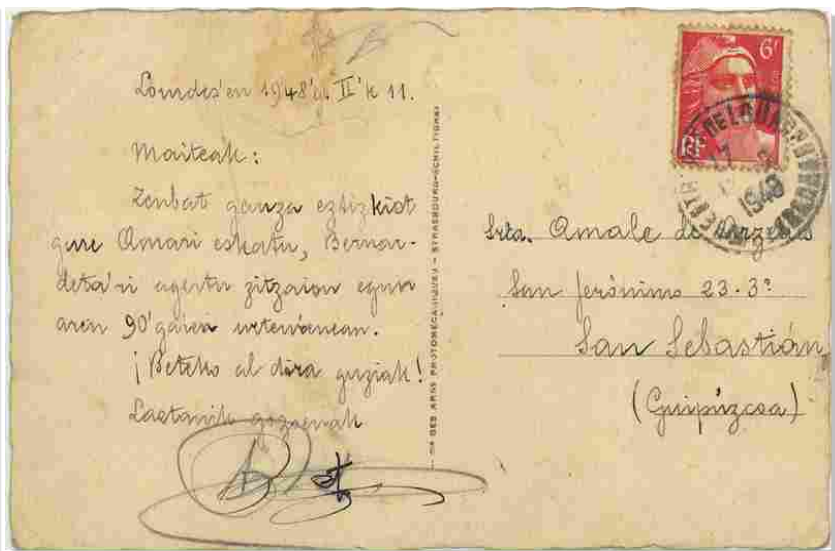 Lourdes'en 1948'g. II'k 11.
Maiteak:
Zenbat gauza eztizkiot
gure Amari eskatu, Bernar-
deta'ri agertu zitzaion egun
aren 90'garen urteurrenean.
¡Beteko al dira guziak!
Laztanik gozoenak
6F
RF
17
1948
Srta. Amale de Arzelus
San Jerónimo 23-3º
San Sebastián
(Guipúzcoa)